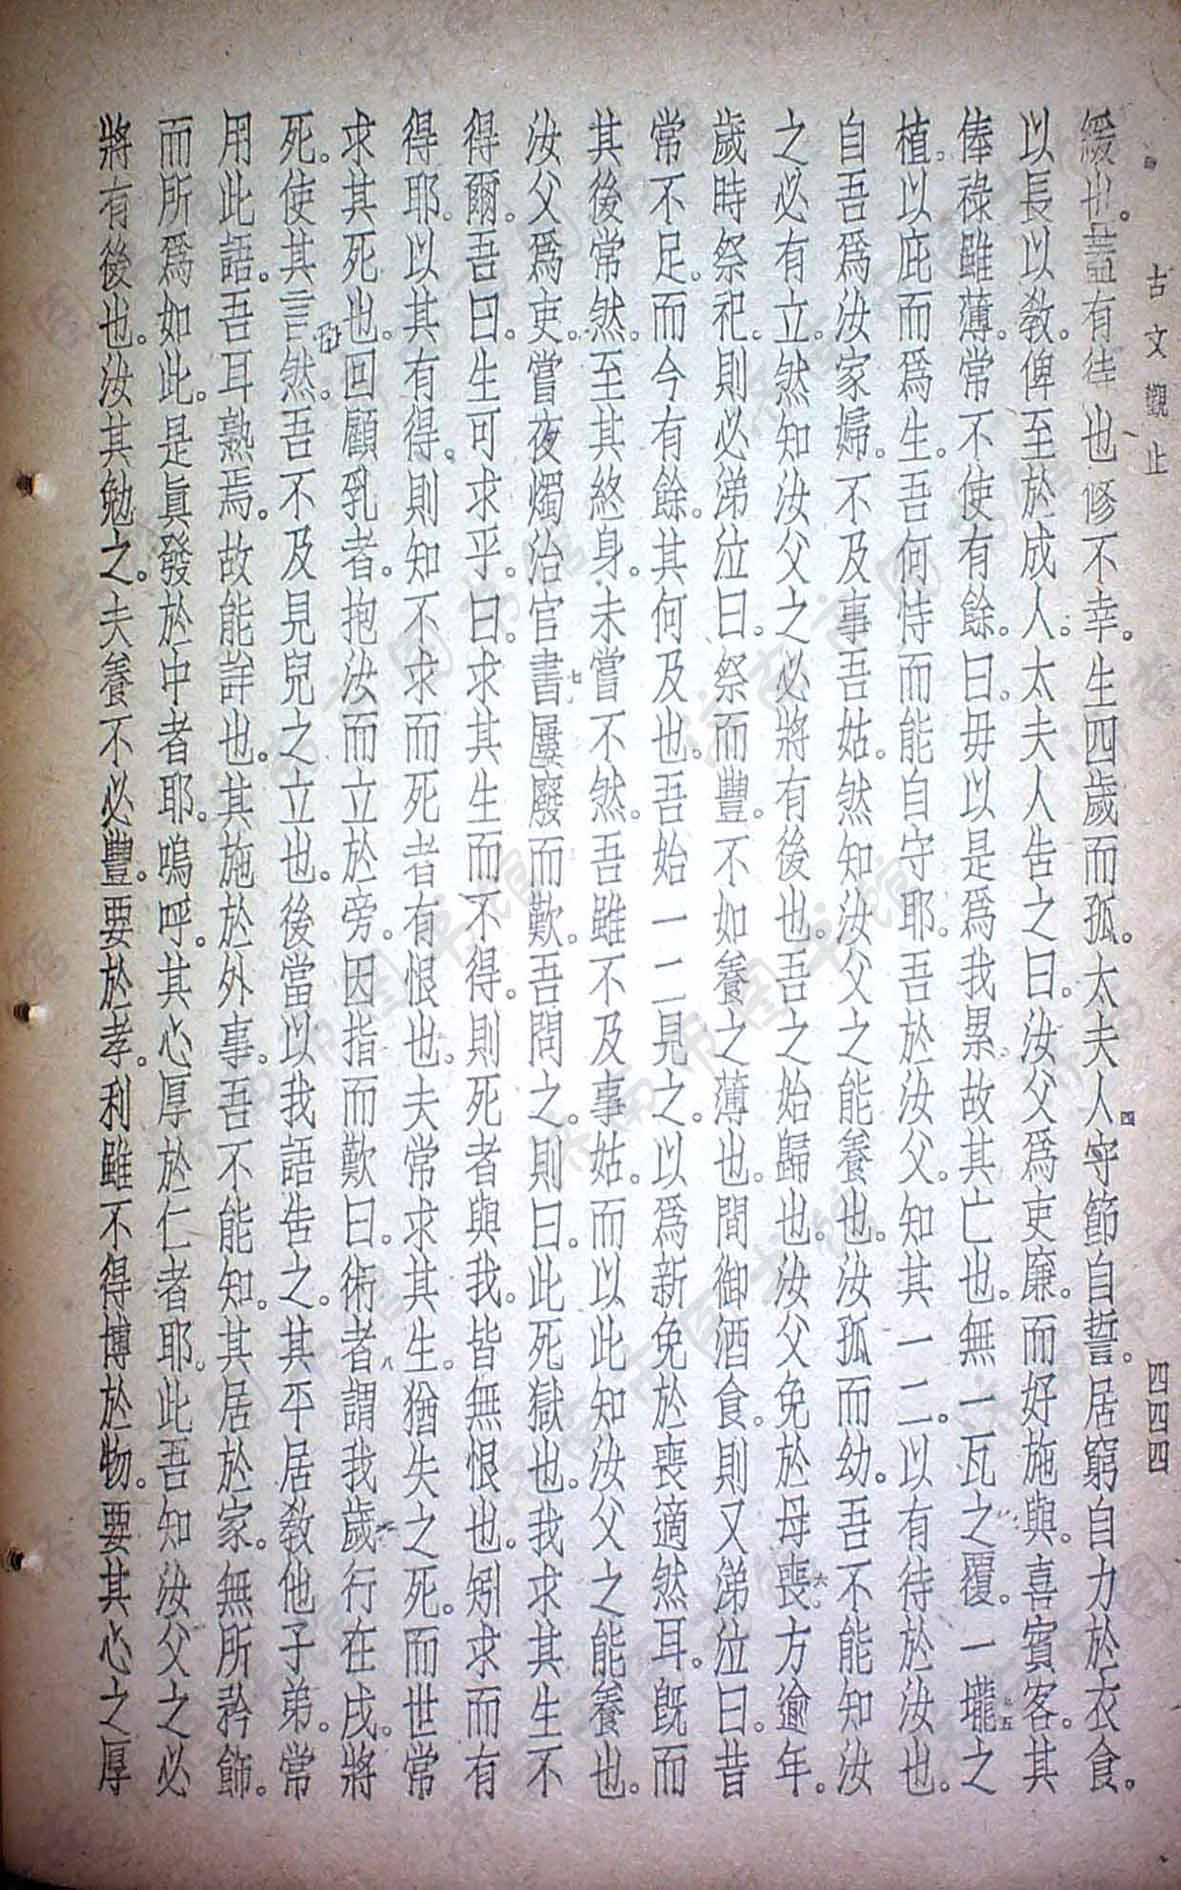 古文觀止
四四四
緩也。蓋有待也修不幸。生四歲而孤。太夫人四守節自誓。居窮自力於衣食。
以長以敎。俾至於成人。太夫人告之曰。汝父爲吏廉。而好施與。喜賓客。其
俸祿雖薄。常不使有餘。曰。毋以是爲我累。故其亡也。無一瓦之覆。一壠五之
植。以庇而爲生。吾何恃而能自守耶。吾於汝父。知其一二。以有待於汝也。
自吾爲汝家婦。不及事吾姑。然知汝父之能養也。汝孤而幼。吾不能知汝
之必有立。然知汝父之必將有後也。吾之始歸也。汝父免於母喪六。方逾年。
歲時祭祀。則必涕泣曰。祭而豐。不如養之薄也。間御酒食。則又涕泣曰。昔
常不足。而今有餘。其何及也。吾始一二見之。以爲新免於喪適然耳。旣而
其後常然。至其終身。未嘗不然。吾雖不及事姑。而以此知汝父之能養也。
汝父爲吏。嘗夜燭治官書七屢廢而歎。吾問之。則曰。此死獄也。我求其生不
得爾。吾曰。生可求乎。曰。求其生而不得。則死者與我。皆無恨也。矧求而有
得耶。以其有得。則知不求而死者有恨也。夫常求其生。猶失之死。而世常
求其死也。回顧乳者。抱汝而立於旁。因指而歎曰。術者八謂我歲行在戌。將
死。使其言然。吾不及見兒之立也。後當以我語告之。其平居敎他子弟。常
用此語。吾耳熟焉。故能詳也。其施於外事。吾不能知。其居於家。無所矜飾。
而所爲如此。是眞發於中者耶。嗚呼。其心厚於仁者耶。此吾知汝父之必
將有後也。汝其勉之。夫養不必豐。要於孝。利雖不得博於物。要其心之厚